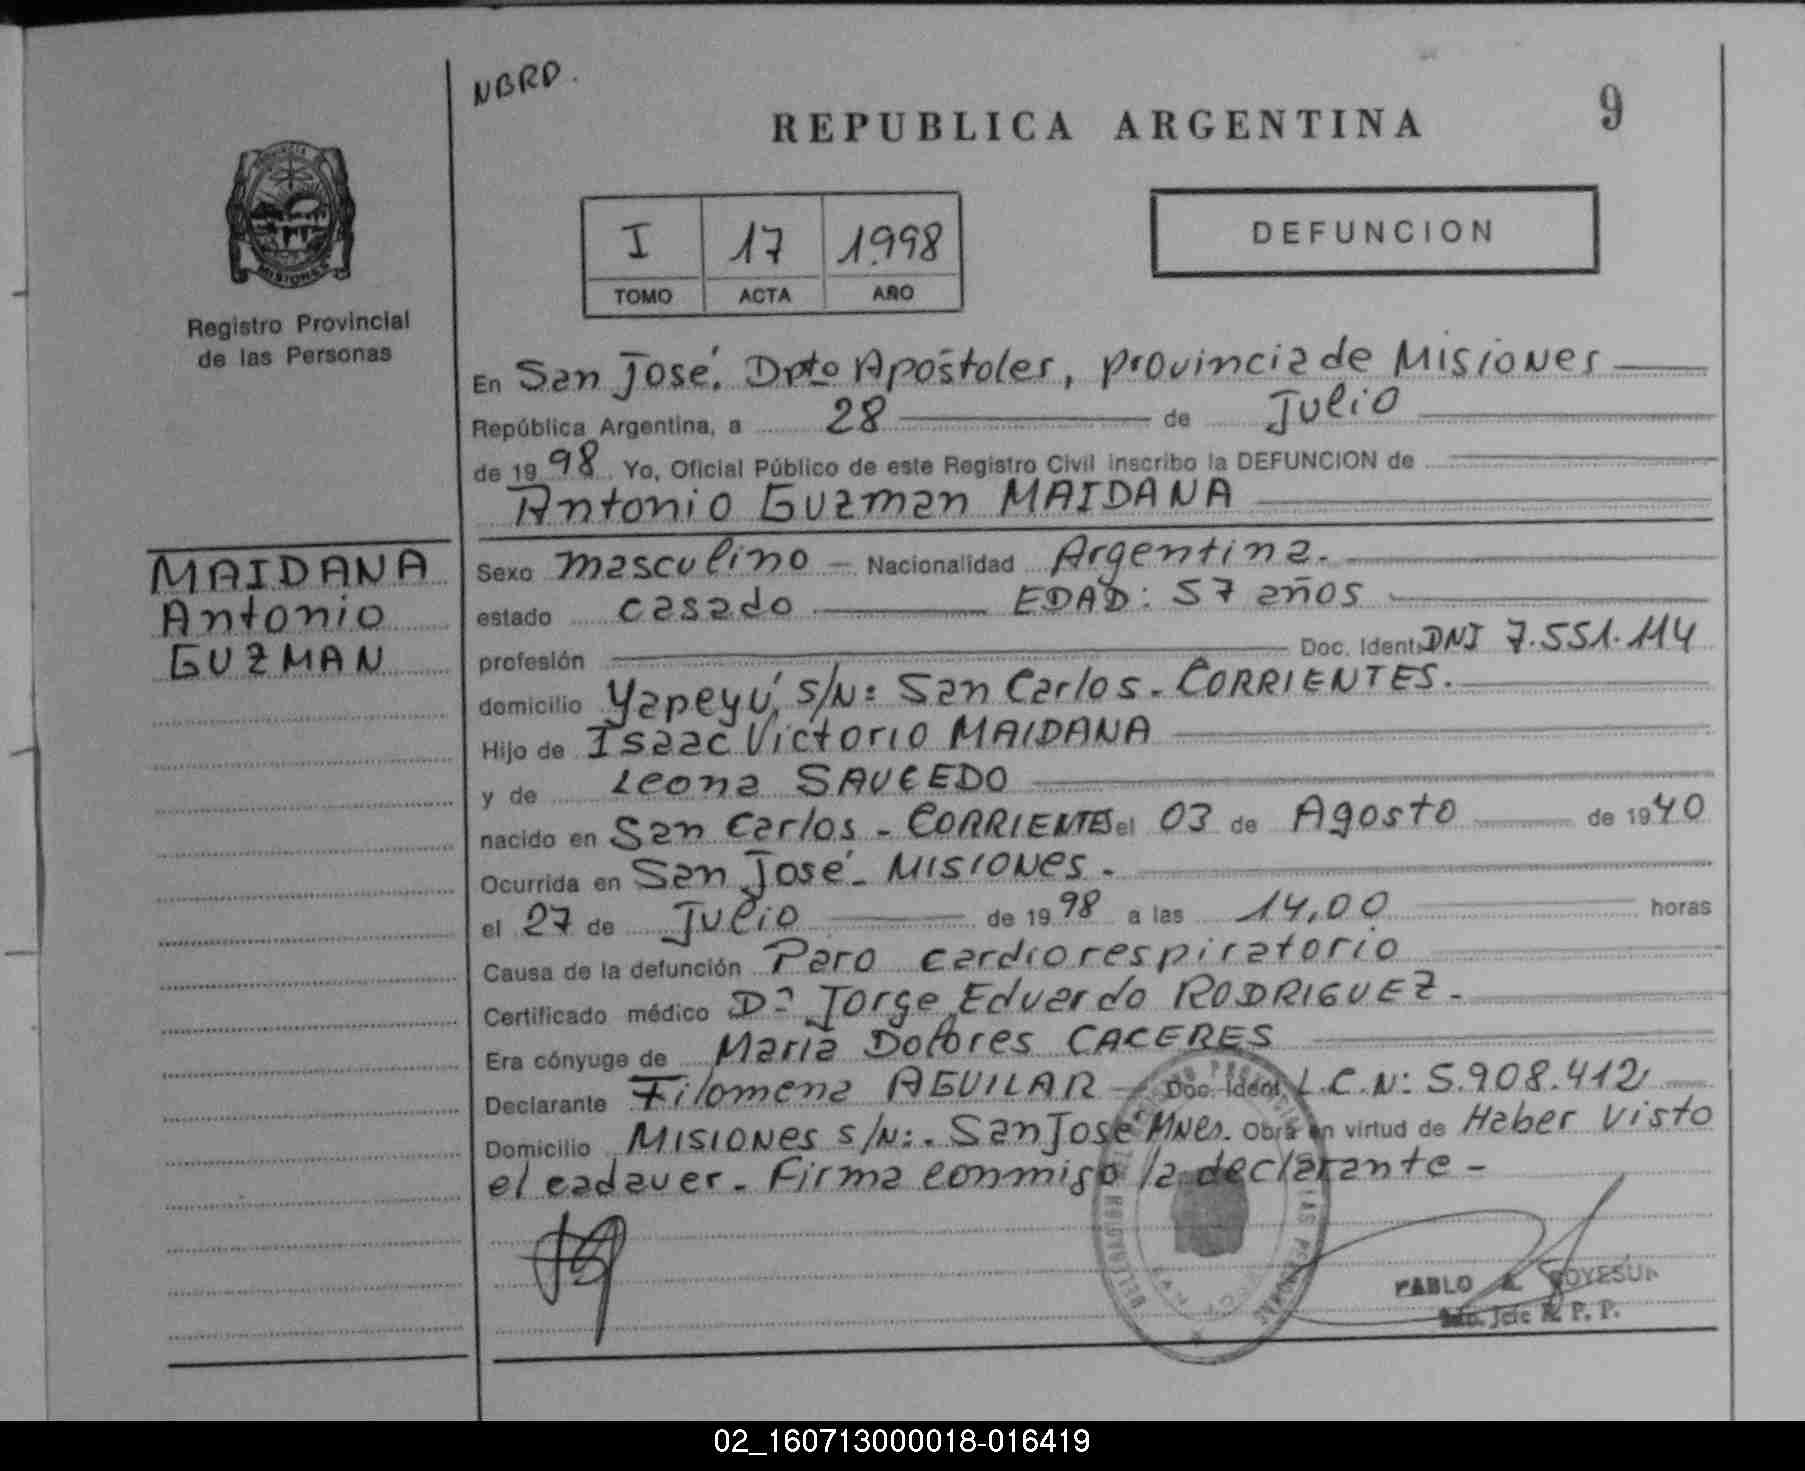 NBRD.
REPUBLICA ARGENTINA
9
MISIONES
Registro Provincial
de las Personas
I 17 1.998
TOMO ACTA AÑO
DEFUNCION
En San José. Dpto Apóstoles, provincia de Misiones
República Argentina, a 28 de Julio
de 1998. Yo, Oficial Público de este Registro Civil inscribo la DEFUNCION de
Antonio Guzman MAIDANA
MAIDANA
Antonio
GUZMAN
Sexo masculino - Nacionalidad Argentina.
estado casado EDAD: 57 años
profesión Doc. Ident. DNI 7.551.114
domicilio Yapeyú s/N: San Carlos - CORRIENTES.
Hijo de Isaac Victorio MAIDANA
y de Leona SAUCEDO
nacido en San Carlos - CORRIENTES el 03 de Agosto de 1940
Ocurrida en San José - Misiones.
el 27 de Julio de 1998 a las 14,00 horas
Causa de la defunción Paro cardiorespiratorio
Certificado médico Dª Jorge Eduardo RODRIGUEZ.-
Era cónyuge de Maria Dolores CACERES
Declarante Filomena AGUILAR - Doc. Ident. L.C.N: 5.908.412
Domicilio Misiones s/N:. San José Mnes. Obra en virtud de Haber visto
el cadaver. Firma conmigo la declarante -
PABLO
Jefe R. P. P.
02_160713000018-016419